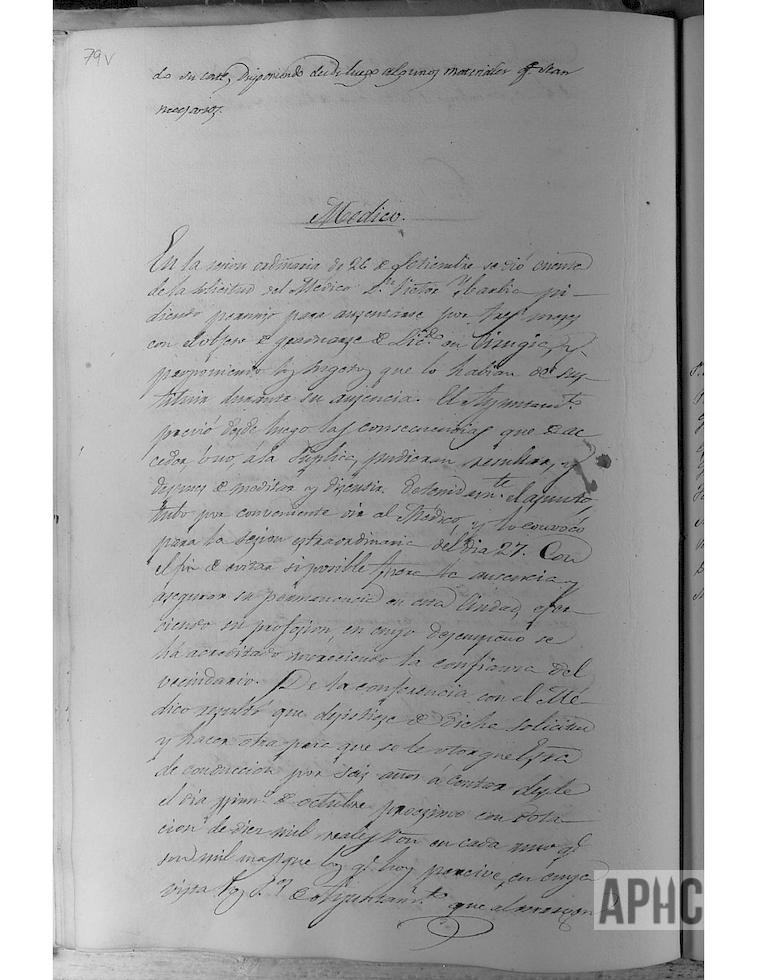 79v
do su coste, disponiendo desde luego algunos materiales q.e sean
necesarios.
Medico.
En la sesion ordinaria de 26 de Setiembre se dió cuenta
de la solicitud del Medico D.n Victor Ybarlia pi-
diendo permiso para ausentarse por tres meses
con el objeto de graduarse de Lic.do en Cirugia, y
proponiendo los sugetos que lo habian de sus-
tituir durante su ausencia. El Ayuntam.to
previó desde luego las consecuencias que de ac-
ceder, ó no, á la suplica, pudieran resultar, y
despues de meditar y discutir detenidam.te el asunto
tubo por conveniente oir al Médico, y lo convocó
para la sesion extraordinaria del dia 27. Con
el fin de evitar si posible fuera la ausencia y
asegurar su permanencia en esta Ciudad, ejer-
ciendo su profesion, en cuyo desempeño se
há acreditado mereciendo la confianza del
vecindario. De la conferencia con el Mé-
dico resultó que desistiese de dicha solicitud
y hacer otra para que se le otorgue Escra
de conduccion por seis años á contar desde
el dia prim.o de octubre proximo con dota-
cion de diez mil reales von en cada uno q.e
son mil mas que los q.e hoy percive, en cuya
vista los S.S. de Ayuntam.to que al margen
APHC